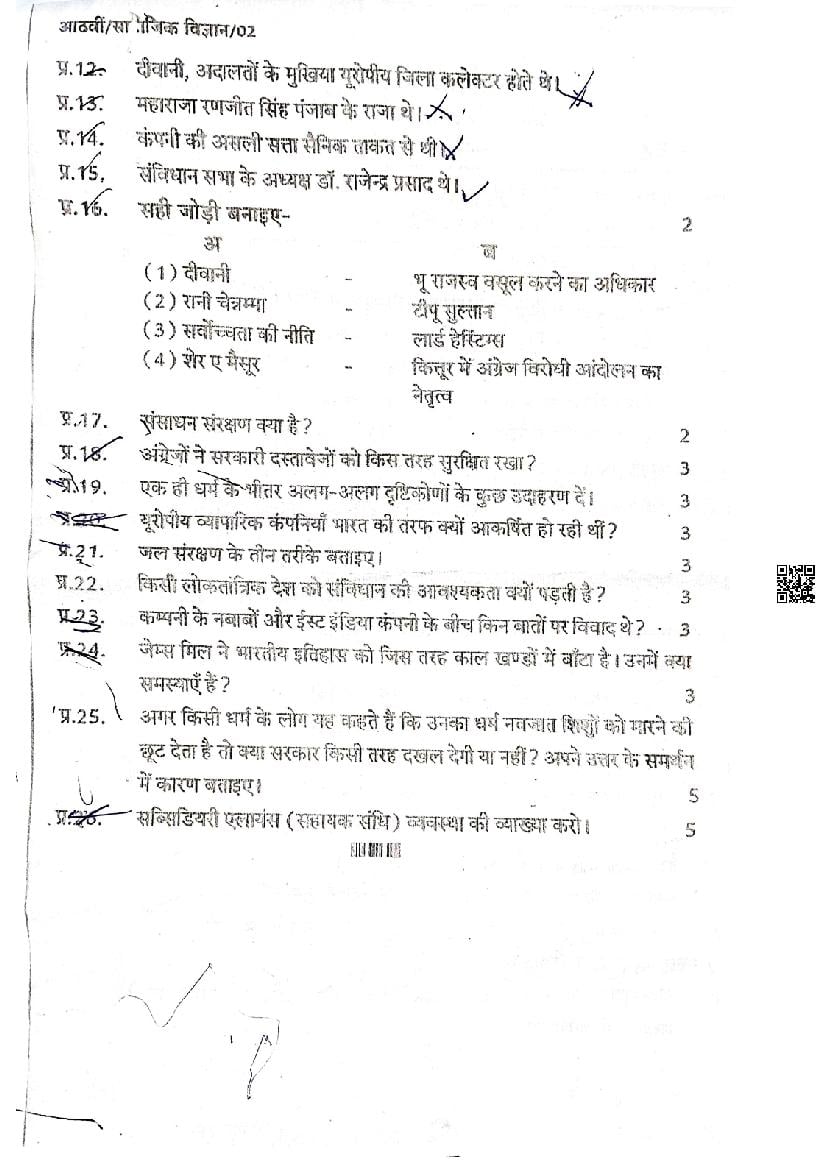 आठवीं/सा जिक विज्ञान/02
प्र.12. दीवानी, अदालतों के मुखिया यूरोपीय जिला कलेक्टर होते थे।
प्र.13. महाराजा रणजीत सिंह पंजाब के राजा थे।
प्र.14. कंपनी की असली सत्ता सैनिक ताकत से थी।
प्र.15. संविधान सभा के अध्यक्ष डॉ. राजेन्द्र प्रसाद थे।
प्र.16. सही जोड़ी बनाइए- 2
अ ब
(1) दीवानी - भू राजस्व वसूल करने का अधिकार
(2) रानी चेन्नम्मा - टीपू सुल्तान
(3) सर्वोच्चता की नीति - लार्ड हेस्टिंग्स
(4) शेर ए मैसूर - कित्तूर में अंग्रेज विरोधी आंदोलन का
नेतृत्व
प्र.17. संसाधन संरक्षण क्या है? 2
प्र.18. अंग्रेजों ने सरकारी दस्तावेजों को किस तरह सुरक्षित रखा? 3
प्र.19. एक ही धर्म के भीतर अलग-अलग दृष्टिकोणों के कुछ उदाहरण दें। 3
प्र.20. यूरोपीय व्यापारिक कंपनियाँ भारत की तरफ क्यों आकर्षित हो रही थीं? 3
प्र.21. जल संरक्षण के तीन तरीके बताइए। 3
प्र.22. किसी लोकतांत्रिक देश को संविधान की आवश्यकता क्यों पड़ती है? 3
प्र.23. कम्पनी के नबाबों और ईस्ट इंडिया कंपनी के बीच किन बातों पर विवाद थे? 3
प्र.24. जेम्स मिल ने भारतीय इतिहास को जिस तरह काल खण्डों में बाँटा है। उनमें क्या
समस्याएँ हैं? 3
प्र.25. अगर किसी धर्म के लोग यह कहते हैं कि उनका धर्म नवजात शिशुों को मारने की
छूट देता है तो क्या सरकार किसी तरह दखल देगी या नहीं? अपने उत्तर के समर्थन
में कारण बताइए। 5
प्र.26. सब्सिडियरी एलायंस (सहायक संधि) व्यवस्था की व्याख्या करो। 5